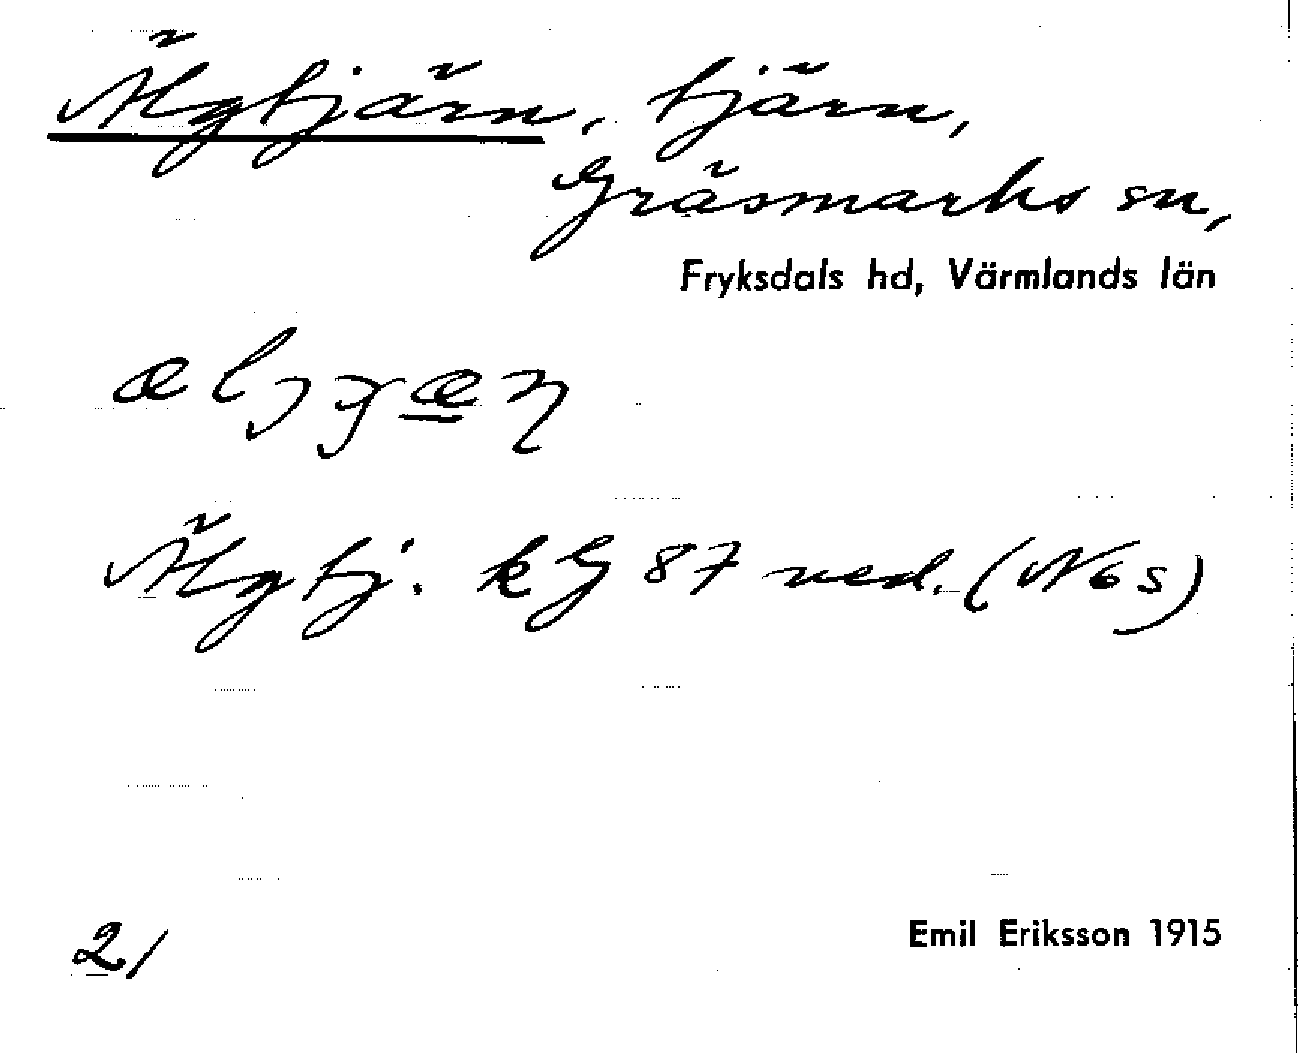 Älgtjärn, tjärn,
Gräsmarks sn,
Fryksdals hd, Värmlands län
Älgtj. kG 87 ned. (N6s)
21
Emil Eriksson 1915